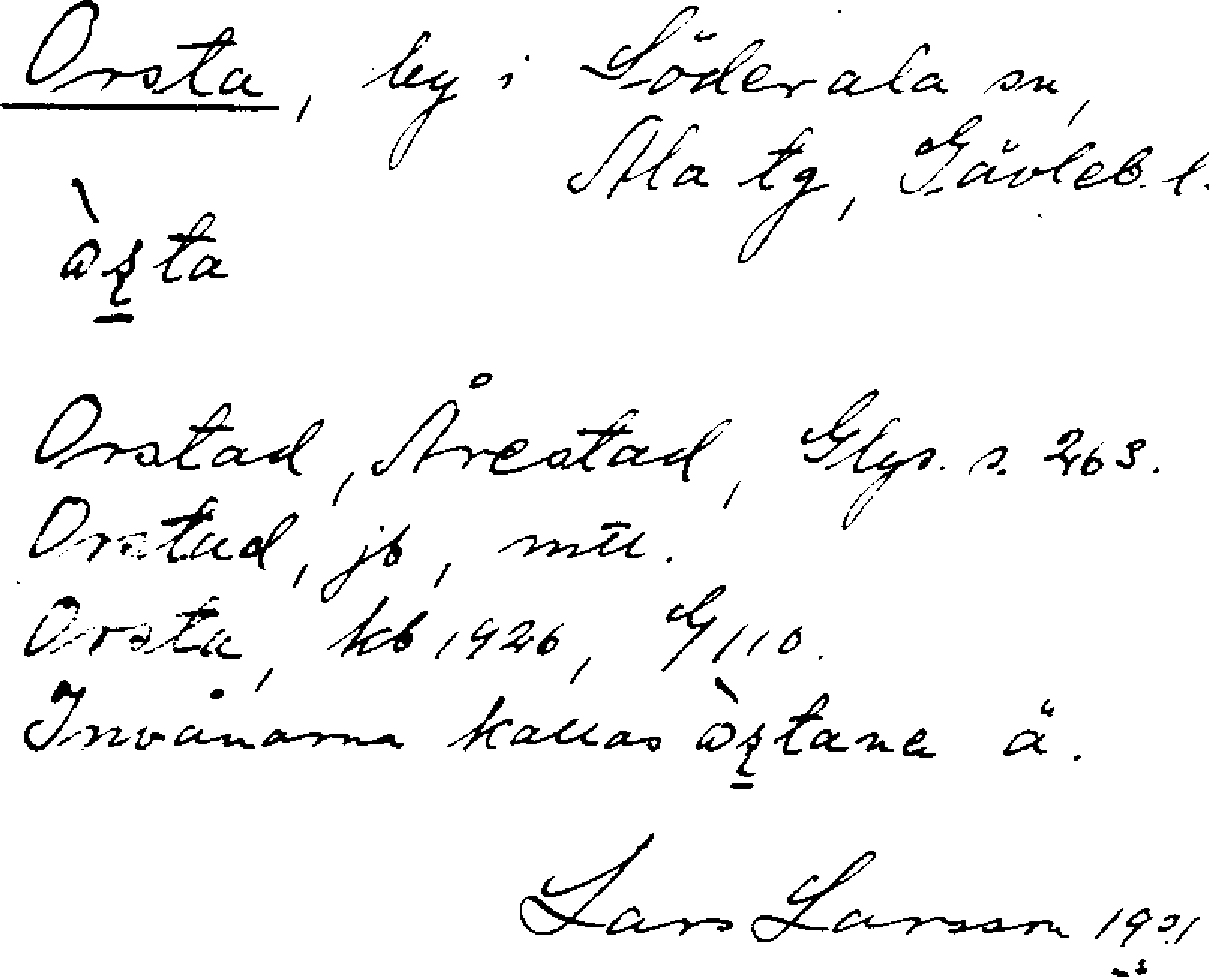 Orsta, by i Söderala sn,
Ala tg, Gävleb. l.
Orstad, Årestad, Glys. s. 263.
Orstad, jb, mtl.
Orsta, kb 1926, G 110.
Invånarna kallas ä.
Lars Larsson